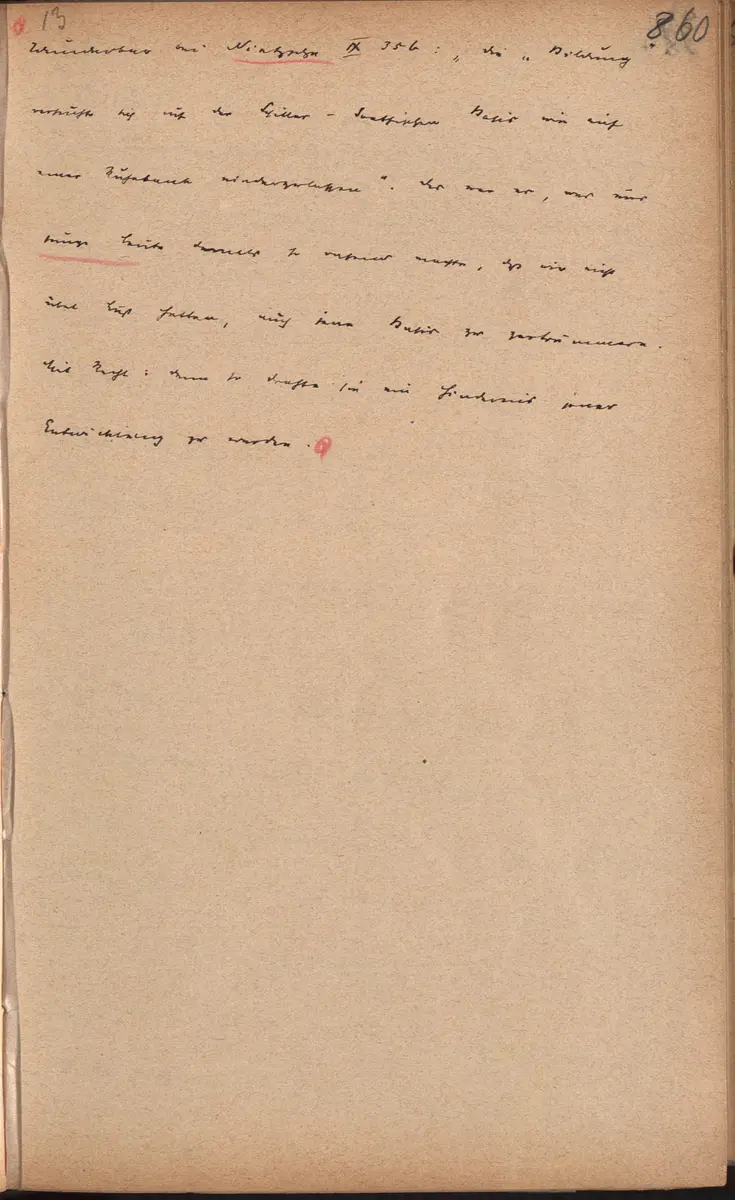 13
860
Wunderbar bei Nietzsche IX 356: „die „Bildung
versuchte sich auf der Schiller-Goetheschen Basis wie auf
einer Ruhebank niederzulassen“. Das war es, was uns
junge Leute damals so rasend machte, daß wir nicht
übel Lust hatten, auch jene Basis zu zertrümmern.
Mit Recht: denn so drohte sie ein Hindernis jener
Entwicklung zu werden.